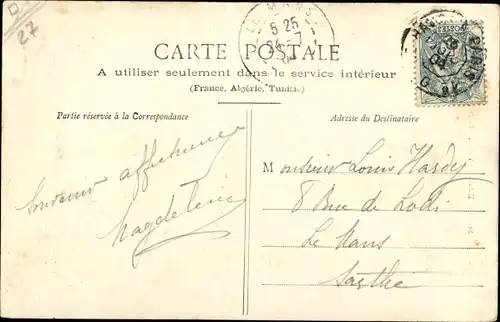 D
27
LE MANS
5 25
24 - 7
CARTE POSTALE
A utiliser seulement dans le service intérieur
(France, Algérie, Tunisie)
Partie réservée à la Correspondance
Adresse du Destinataire
Souvenir affectueux
Magdeleine
Monsieur Louis Hardy
8 Rue de Lodi
Le Mans
Sarthe